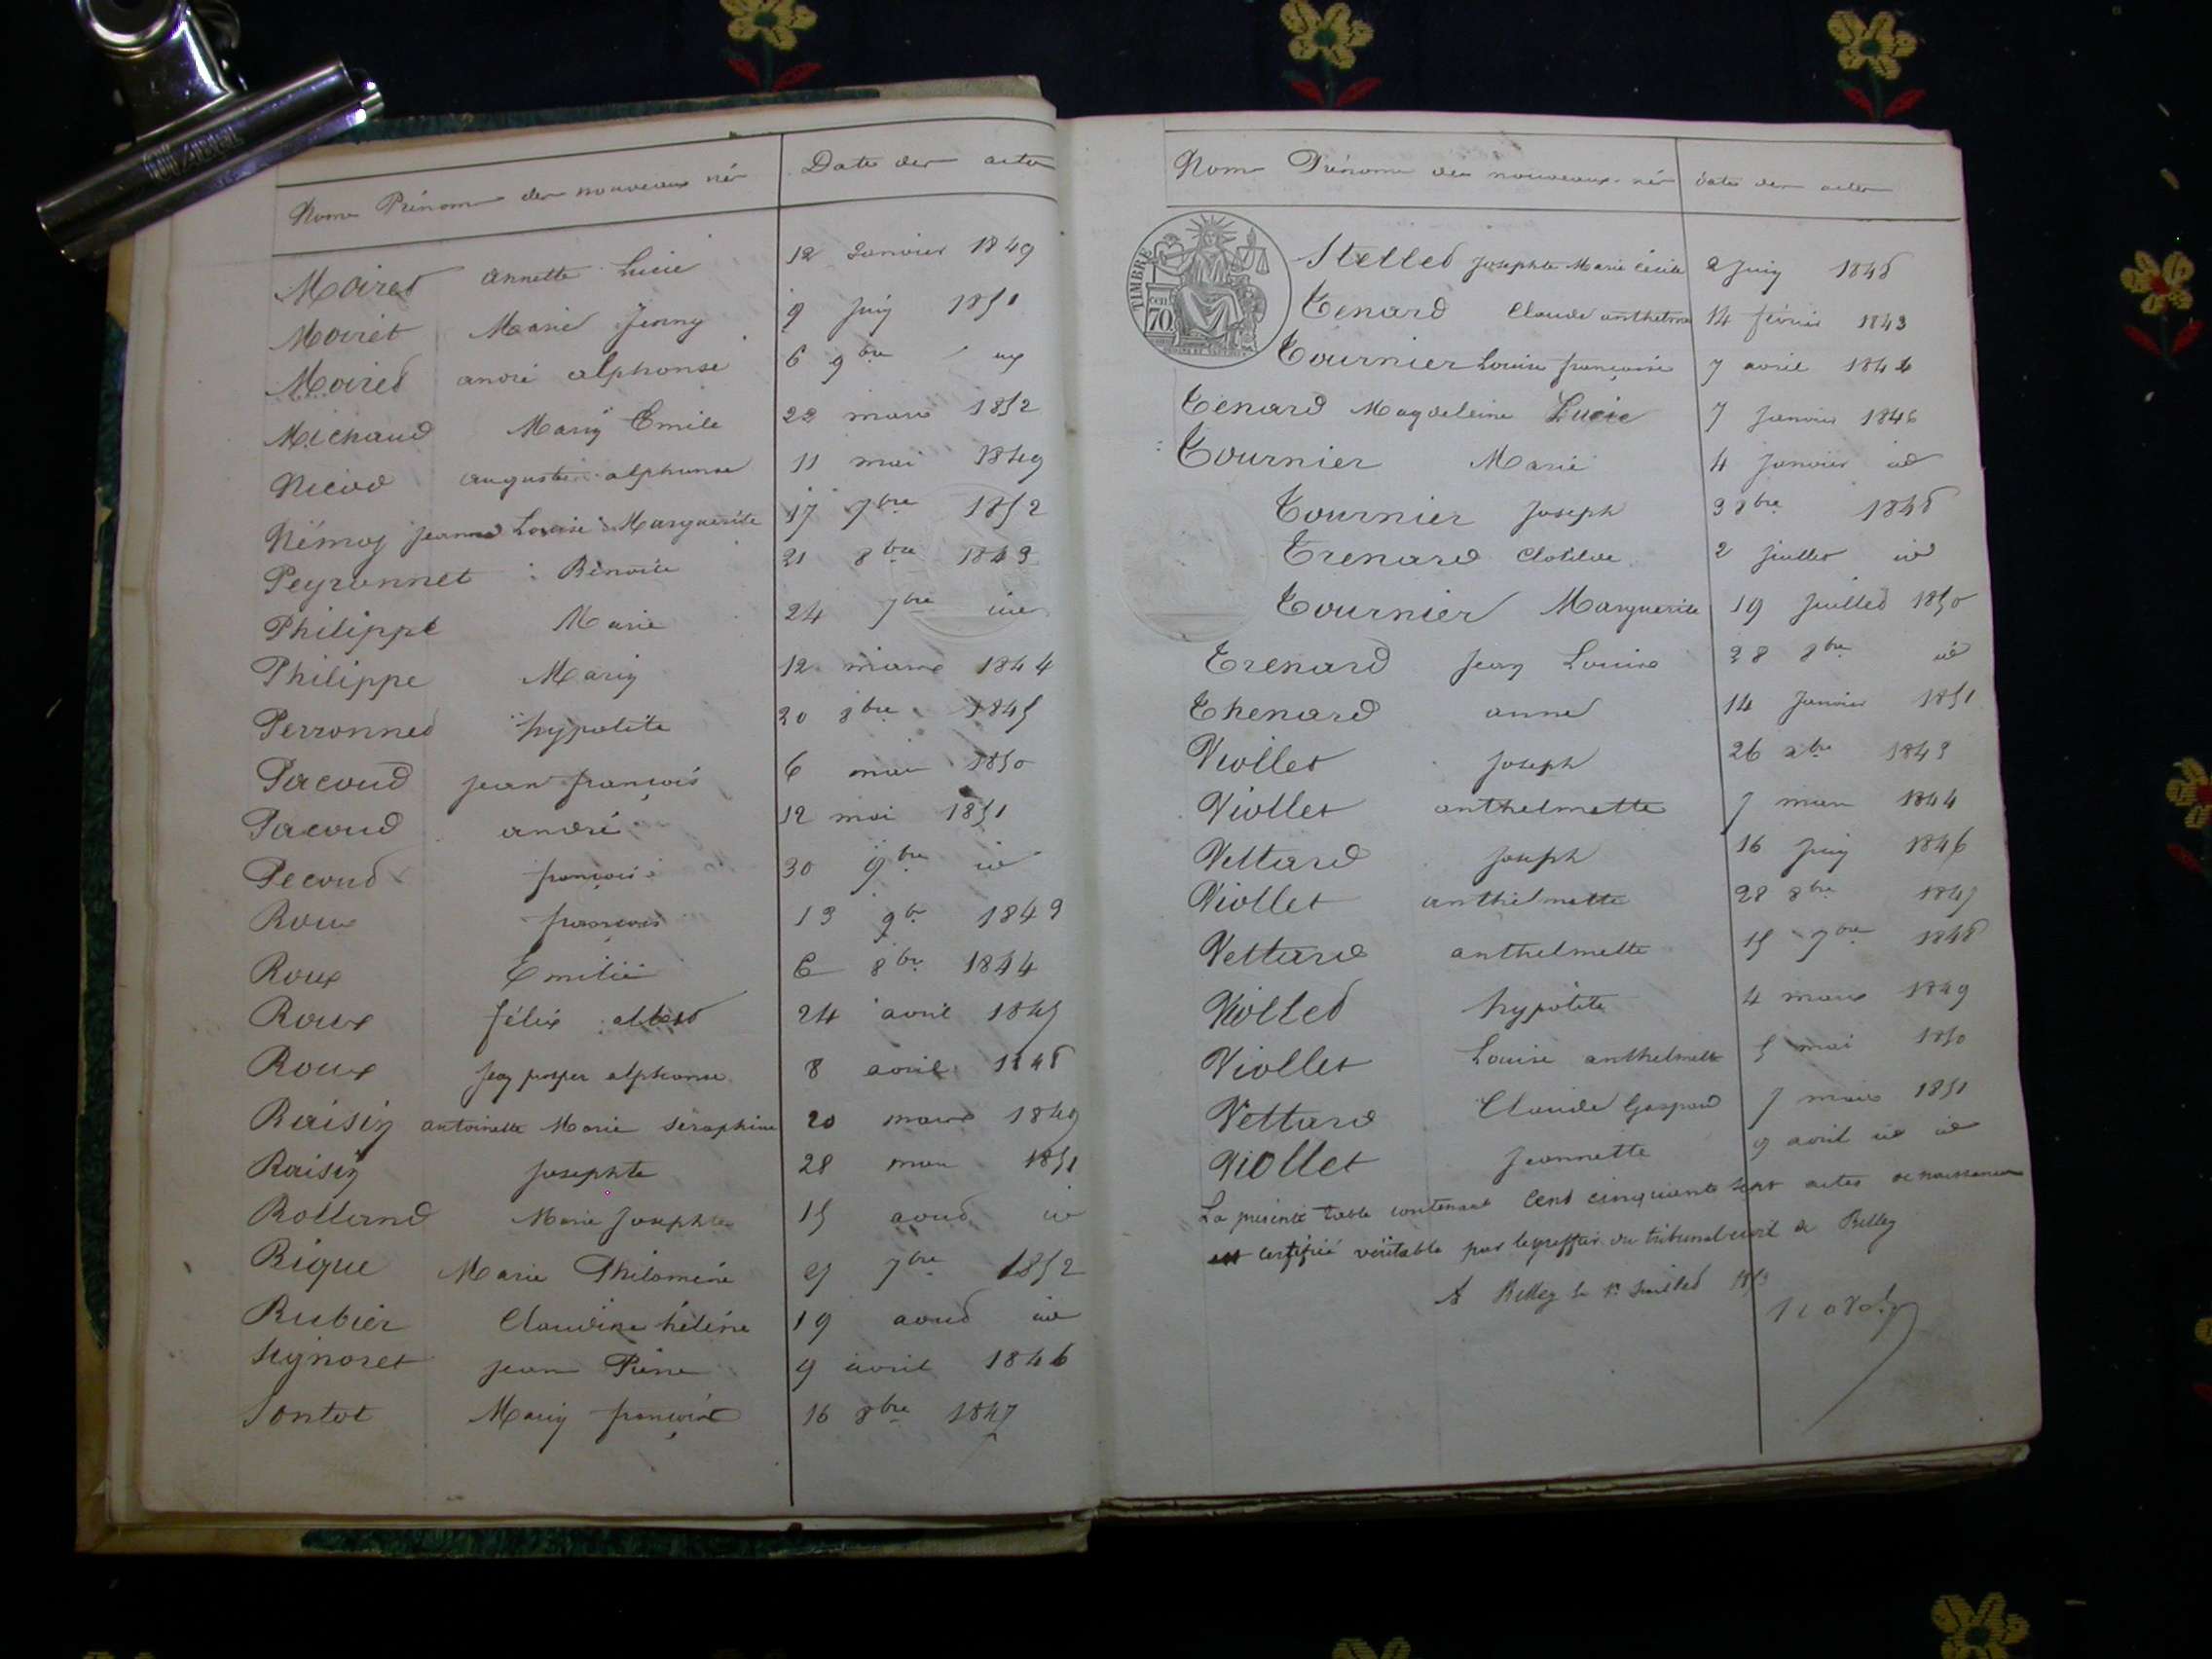 Noms Prénoms des nouveaux nés Date des actes
Mairet annette Lucie 12 Janvier 1849
Mairet Marie Jenny 9 Juin 1851
Mairet andré alphonse 6 9bre
Michaud Marie Emile 22 mars 1852
Nicod augustin alphonse 11 mai 1849
Némoz Jeanne Louise Marguerite 17 7bre 1852
Peyronnet Benoite 21 8bre 1843
Philippe Marie 24 7bre id
Philippe Marie 12 mars 1844
Perronnet hypolite 20 8bre 1845
Pacoud jean françois 6 mai 1850
Pacoud andré 12 mai 1851
Pecoud françois 30 9bre id
Roux françois 13 9bre 1843
Roux Emilie 6 8bre 1844
Roux félix albert 24 avril 1845
Roux Jean prosper alphonse 8 avril 1848
Raisin antoinette Marie séraphine 20 mars 1849
Raisin Josephte 28 mars 1851
Rolland Marie Josephte 15 aout id
Rique Marie Philomène 7bre 1852
Rubier Claudine hélène 19 aout id
Signoret jean Pierre 9 avril 1846
Sontot Marie françoise 16 8bre 1847
Noms Prénoms des nouveaux-nés date des actes
TIMBRE
cen
70
Stellet Josephte Marie Cécile 2 Juin 1848
Tenard Claude anthelme 14 février 1843
Tournier Louise françoise 7 avril 1844
Tenard Magdeleine Lucie 7 Janvier 1846
Tournier Marie 4 Janvier id
Tournier Joseph 3 8bre 1848
Trenard Clotilde 2 Juillet id
Tournier Marguerite 19 Juillet 1850
Trenard Jean Louis 28 8bre id
Thenard anne 14 Janvier 1851
Viollet Joseph 26 xbre 1843
Viollet anthelmette 7 mars 1844
Vettard Joseph 16 Juin 1846
Viollet anthelmette 28 8bre 1847
Vettard anthelmette 15 7bre 1848
Viollet hypolite 4 mars 1849
Viollet Louise anthelmette 5 mai 1850
Vettard Claude Gaspard 7 mars 1851
Viollet Jeannette 9 avril id id
La présente table contenant Cent cinquante sept actes de naissance
est certifiée véritable par le greffier du tribunal civil de Belley
A Belley le 1er Juillet 1853